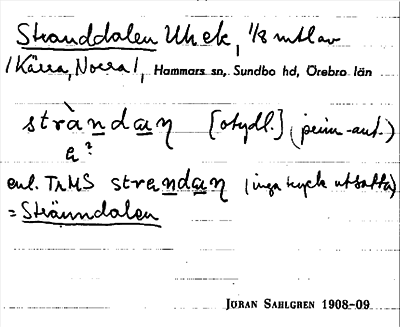 Stranddalen Uhek, 1/8 mtl av
/ Kärra, Norra /, Hammars sn, Sundbo hd, Örebro län
stràndan [otydl.] (prim-ant.)
a?
enl. TrMS strandan (inga tryck utsatta)
= Stränndalen
JÖRAN SAHLGREN 1908-09